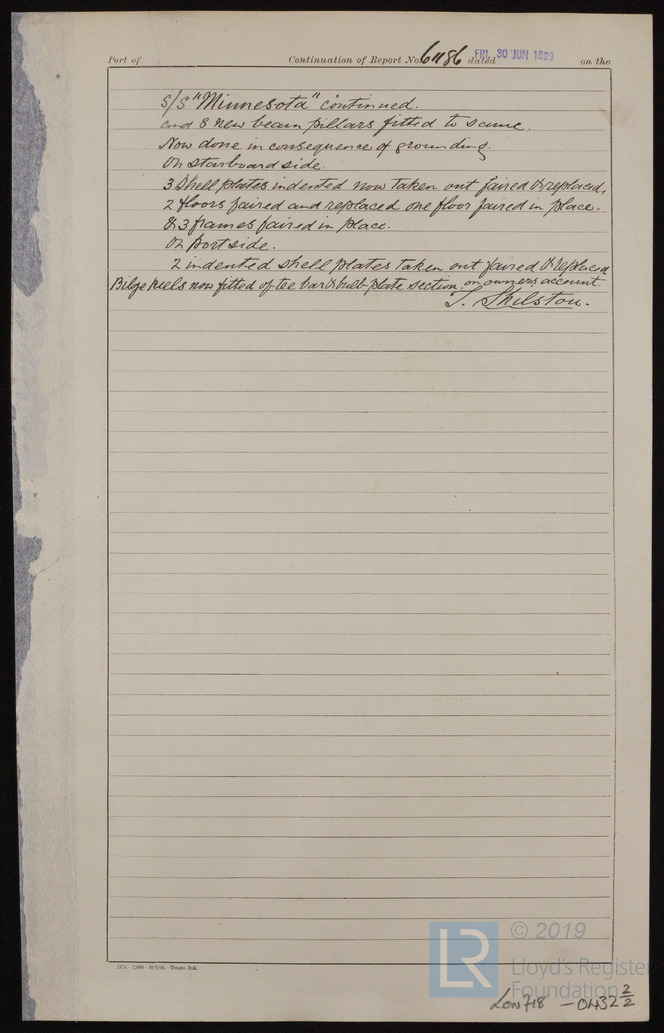 Port of Continuation of Report No 61186 dated FRI. 30 JUN 1899 on the
S/S "Minnesota" continued.
and 8 new beam pillars fitted to same.
Now done in consequence of grounding.
On starboard side.
3 Shell plates indented now taken out faired & replaced,
2 floors faired and replaced one floor faired in place.
& 3 frames faired in place.
On port side.
2 indented shell plates taken out faired & replaced
Bilge keels now fitted of tee bar & bulb plate section on owners account.
T. Shilston.
1671-2000-10/1/96-Trans Ink.
© 2019
LR
Lloyd's Register
Foundation
LON718 - 0432 2/2